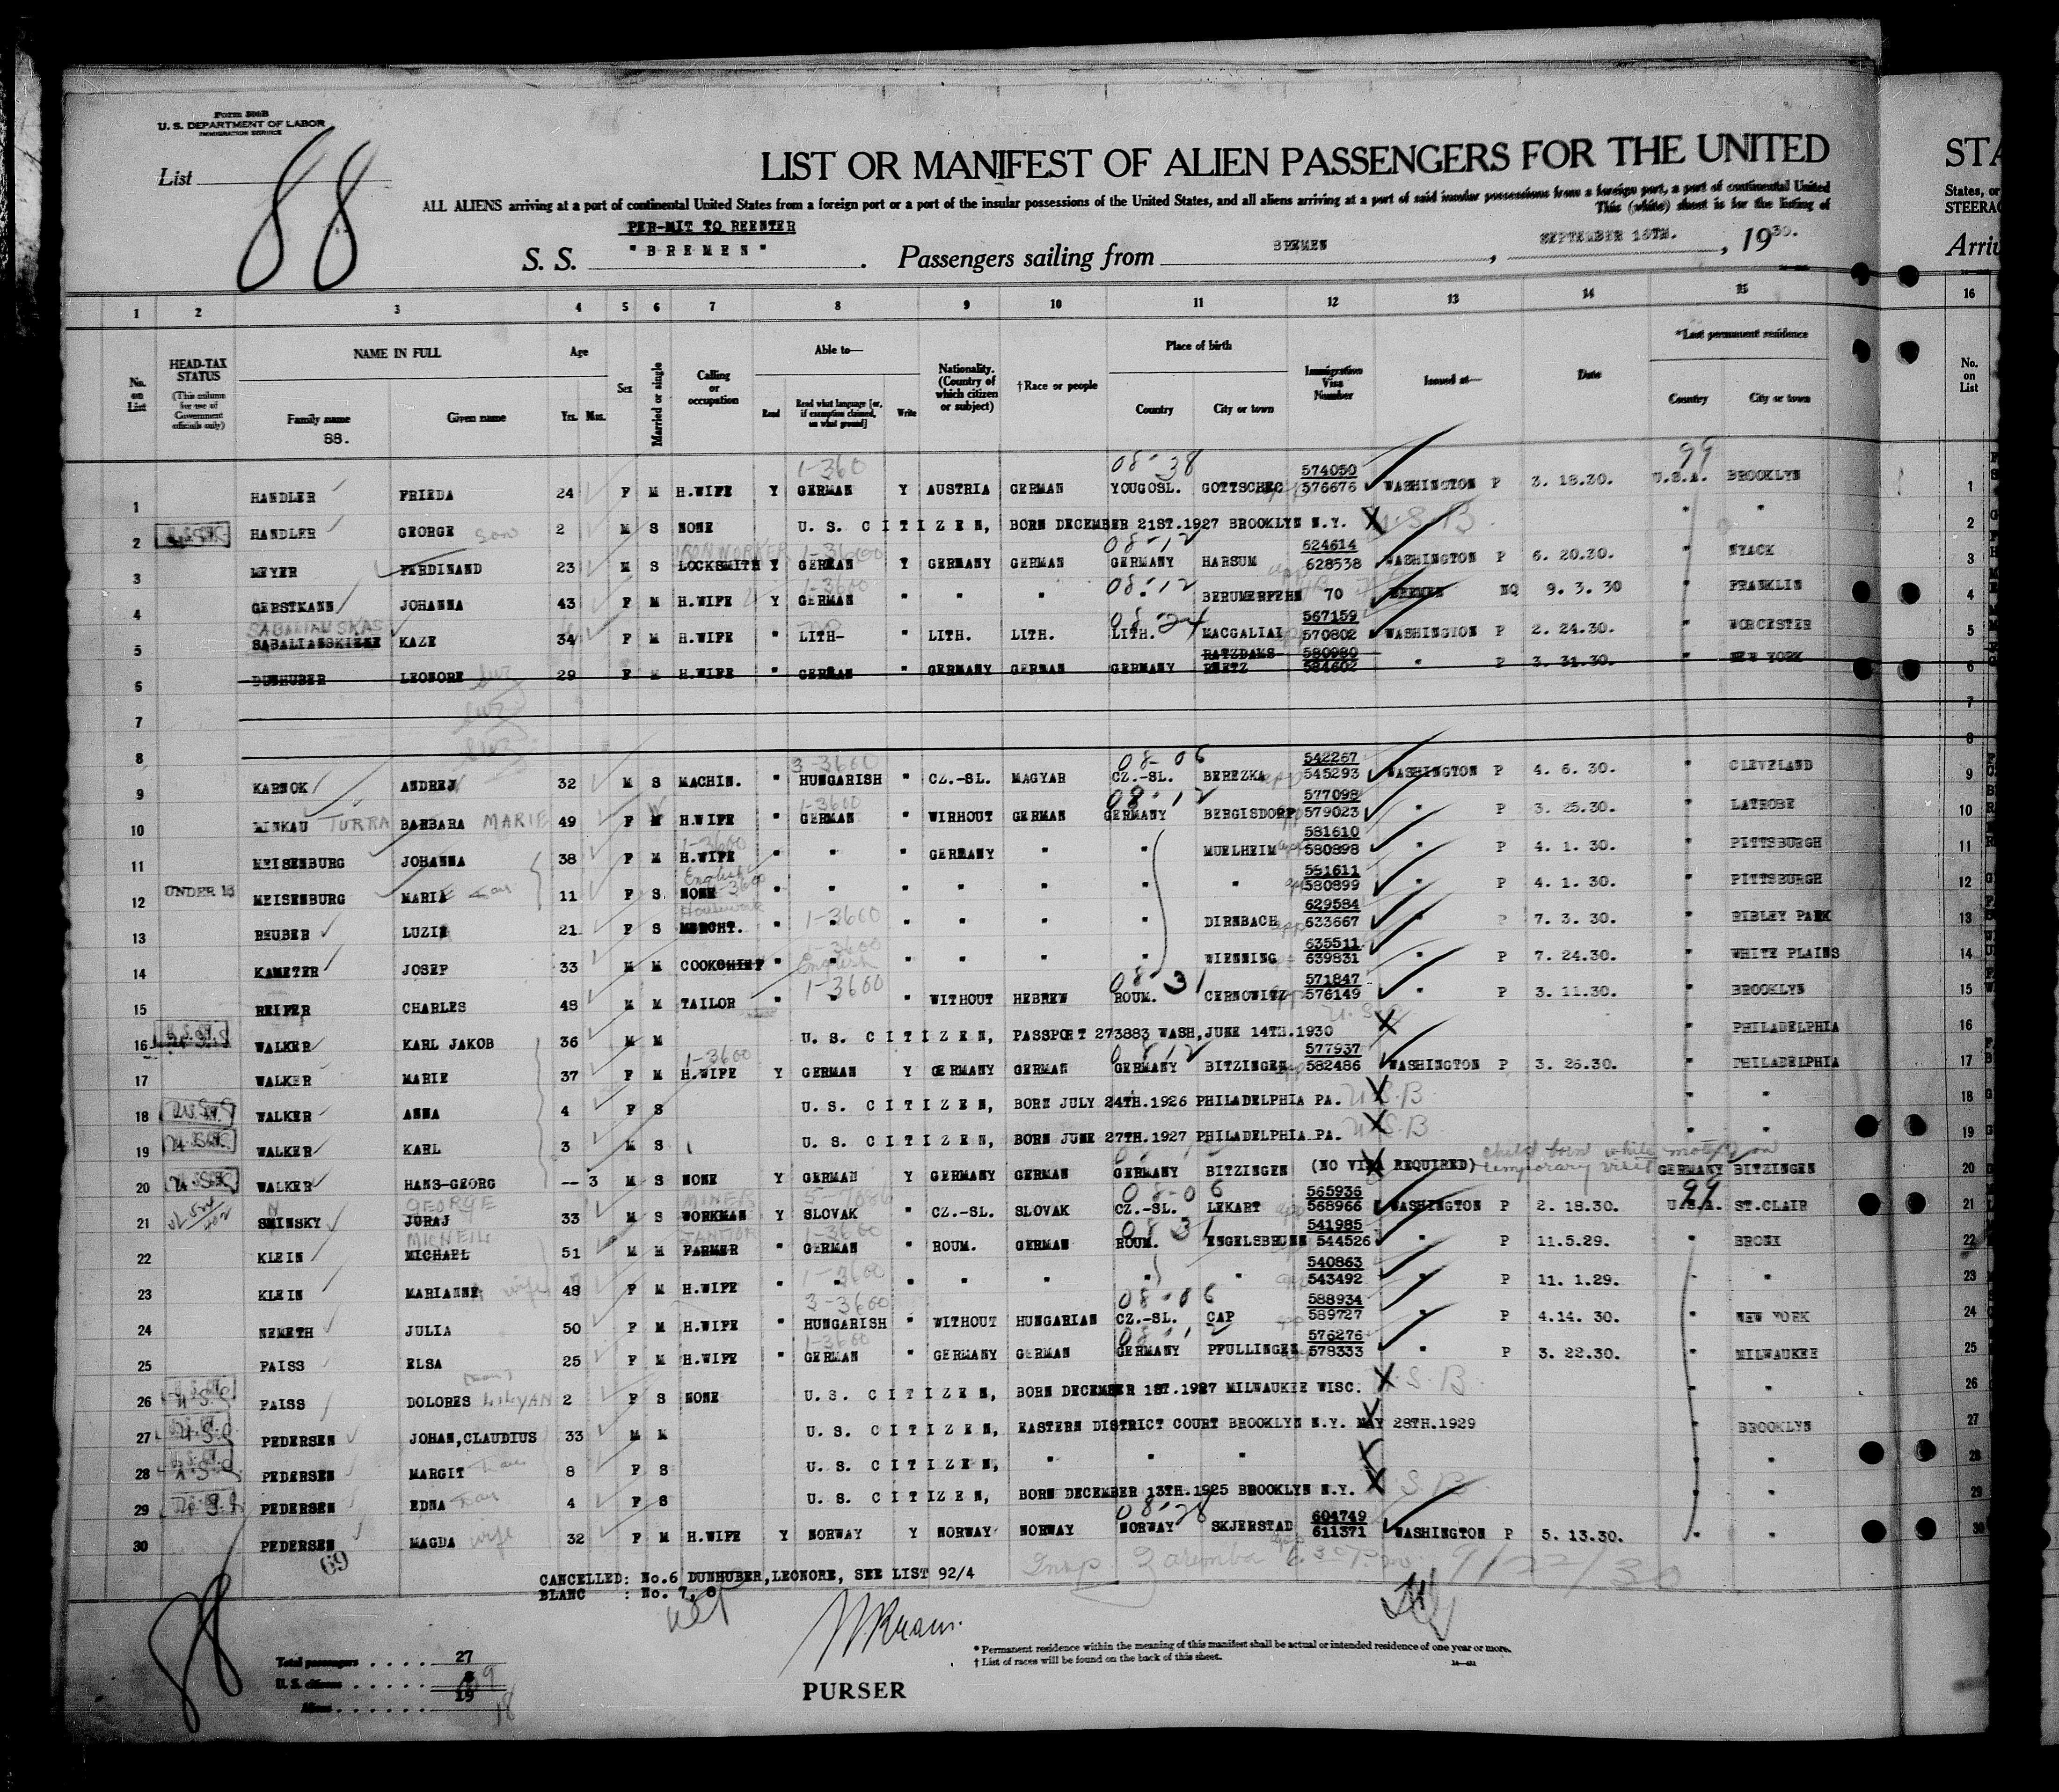 Form 500B
U. S. DEPARTMENT OF LABOR
IMMIGRATION SERVICE
List 88
LIST OR MANIFEST OF ALIEN PASSENGERS FOR THE UNITED
STA
ALL ALIENS arriving at a port of continental United States from a foreign port or a part of the insular possessions of the United States, and all aliens arriving at a port of said insular possessions from a foreign port, a part of continental United
States, or
This (white) sheet is for the listing of
STEERAG
PER-MIT TO REENTER
S. S. "BREMEN". Passengers sailing from BREMEN, SEPTEMBER 16TH., 1930.
Arriv
1 2 3 4 5 6 7 8 9 10 11 12 13 14 15 16
No. on List
HEAD-TAX STATUS (This column for use of Government officials only)
NAME IN FULL Family name Given name
Age Yrs. Mos.
Sex
Married or single
Calling or occupation
Able to— Read Read what language [or, if exemption claimed, on what ground] Write
Nationality. (Country of which citizen or subject)
†Race or people
Place of birth Country City or town
Immigration Visa Number
Issued at—
Date
*Last permanent residence Country City or town
No. on List
88.
1-360 08-38 574050 99
1 HANDLER FRIEDA 24 F M H.WIFE Y GERMAN Y AUSTRIA GERMAN YOUGOSL. GOTTSCHEC 576676 WASHINGTON P 3. 18.30. U.S.A. BROOKLYN 1
2 HANDLER GEORGE son 2 M S NONE U. S. CITIZEN, BORN DECEMBER 21ST.1927 BROOKLYN N.Y. X U.S.B " " 2
IRONWORKER 1-3600 08-12 624614
3 MEYER FERDINAND 23 M S LOCKSMITH Y GERMAN Y GERMANY GERMAN GERMANY HARSUM 628538 WASHINGTON P 6. 20.30. " NYACK 3
1-3600 08-12
4 GERSTMANN JOHANNA 43 F M H.WIFE Y GERMAN " " " BERUMERFEHN 70 BREMEN NQ 9. 3. 30 " FRANKLIN 4
SABALIAUSKAS 08-24 567159
5 SABALIANSKIENE KAZE 34 F M H.WIFE " LITH- " LITH. LITH. LITH. MACGALIAI 570802 WASHINGTON P 2. 24.30. " WORCESTER 5
RATZDAMS- 580980
6 DUNHUBER LEONORE 29 F M H.WIFE " GERMAN " GERMANY GERMAN GERMANY 584602 " P 3. 31.30. " NEW YORK 6
7 7
8 8
3-3600 08-06 542267
9 KARNOK ANDREJ 32 M S MACHIN. " HUNGARISH " CZ.-SL. MAGYAR CZ.-SL. BEREZKA 545293 WASHINGTON P 4. 6. 30. " CLEVELAND 9
1-3600 08-12 577098
10 MINKAU TURRA BARBARA MARIE 49 F M H.WIFE " GERMAN " WIRHOUT GERMAN GERMANY BERGISDORF 579023 " P 3. 25.30. " LATROBE 10
1-3600 581610
11 MEISENBURG JOHANNA 38 F M H.WIFE " " " GERMANY " " MUELHEIM 580898 " P 4. 1. 30. " PITTSBURGH 11
English 551611
12 UNDER 16 MEISENBURG MARIE 11 F S NONE 3600 " " " " " " " 580899 " P 4. 1. 30. " PITTSBURGH 12
Housework 629584
13 REUBER LUZIE 21 F S MERCHT. " 1-3600 " " " " DIRNBACH 633667 " P 7. 3. 30. " RIDLEY PARK 13
1-3600 English 635511
14 KAMETER JOSEP 33 M M COOKCHIEF " " " " " " WIENNING 639831 " P 7. 24.30. " WHITE PLAINS 14
1-3600 08-31 571847
15 REIFER CHARLES 48 M M TAILOR " " " WITHOUT HEBREW ROUM. CERNOWITZ 576149 " P 3. 11.30. " BROOKLYN 15
16 WALKER KARL JAKOB 36 M M U. S. CITIZEN, PASSPORT 273883 WASH,JUNE 14TH.1930 X " PHILADELPHIA 16
1-3600 08-12 577937
17 WALKER MARIE 37 F M H.WIFE Y GERMAN Y GERMANY GERMAN GERMANY BITZINGEN 582486 WASHINGTON P 3. 26.30. " PHILADELPHIA 17
18 WALKER ANNA 4 F S U. S. CITIZEN, BORN JULY 24TH.1926 PHILADELPHIA PA. X U.S.B " " 18
19 WALKER KARL 3 M S U. S. CITIZEN, BORN JUNE 27TH.1927 PHILADELPHIA PA. X U.S.B " " 19
child born while mother on temporary visit
20 WALKER HANS-GEORG -- 3 M S NONE Y GERMAN Y GERMANY GERMAN GERMANY BITZINGEN (NO VISA REQUIRED) GERMANY BITZINGEN 20
GEORGE MINER 08-06 565936 99
21 SMINSKY JURAJ 33 M S WORKMAN Y SLOVAK " CZ.-SL. SLOVAK CZ.-SL. LEKART 568966 WASHINGTON P 2. 18.30. U.S.A. ST.CLAIR 21
JANITOR 1-3600 08 31 541985
22 KLEIN MICHAEL 51 M M FARMER " GERMAN " ROUM. GERMAN ROUM. ENGELSBRUNN 544526 " P 11.5.29. " BRONX 22
1-3600 540863
23 KLEIN MARIANNE wife 48 F M H.WIFE " " " " " " " 543492 " P 11. 1.29. " " 23
3-3600 08-06 588934
24 NEMETH JULIA 50 F M H.WIFE " HUNGARISH " WITHOUT HUNGARIAN CZ.-SL. CAP 589727 " P 4.14. 30. " NEW YORK 24
1-3600 08-12 576276
25 FAISS ELSA 25 F M H.WIFE " GERMAN " GERMANY GERMAN GERMANY PFULLINGEN 578333 " P 3. 22.30. " MILWAUKEE 25
26 FAISS DOLORES LILYAN 2 F S NONE U. S. CITIZEN, BORN DECEMBER 1ST.1927 MILWAUKEE WISC. X U.S.B " " 26
27 PEDERSEN JOHAN,CLAUDIUS 33 M M U. S. CITIZEN, EASTERN DISTRICT COURT BROOKLYN N.Y. MAY 28TH.1929 " BROOKLYN 27
28 PEDERSEN MARGIT 8 F S U. S. CITIZEN, " " " " " 28
29 PEDERSEN EDNA 4 F S U. S. CITIZEN, BORN DECEMBER 13TH.1925 BROOKLYN N.Y. X U.S.B " " 29
08-28 604749
30 PEDERSEN MAGDA wife 32 F M H.WIFE Y NORWAY Y NORWAY NORWAY NORWAY SKJERSTAD 611371 WASHINGTON P 5. 13.30. " " 30
69
CANCELLED: No.6 DUNHUBER,LEONORE, SEE LIST 92/4
BLANC : No. 7, 8
Insp. Zaremba 9/22/30
88
* Permanent residence within the meaning of this manifest shall be actual or intended residence of one year or more.
† List of races will be found on the back of this sheet.
Total passengers . . . . 27
U. S. citizens . . . . . 8 9
Aliens . . . . . . 19 18
PURSER